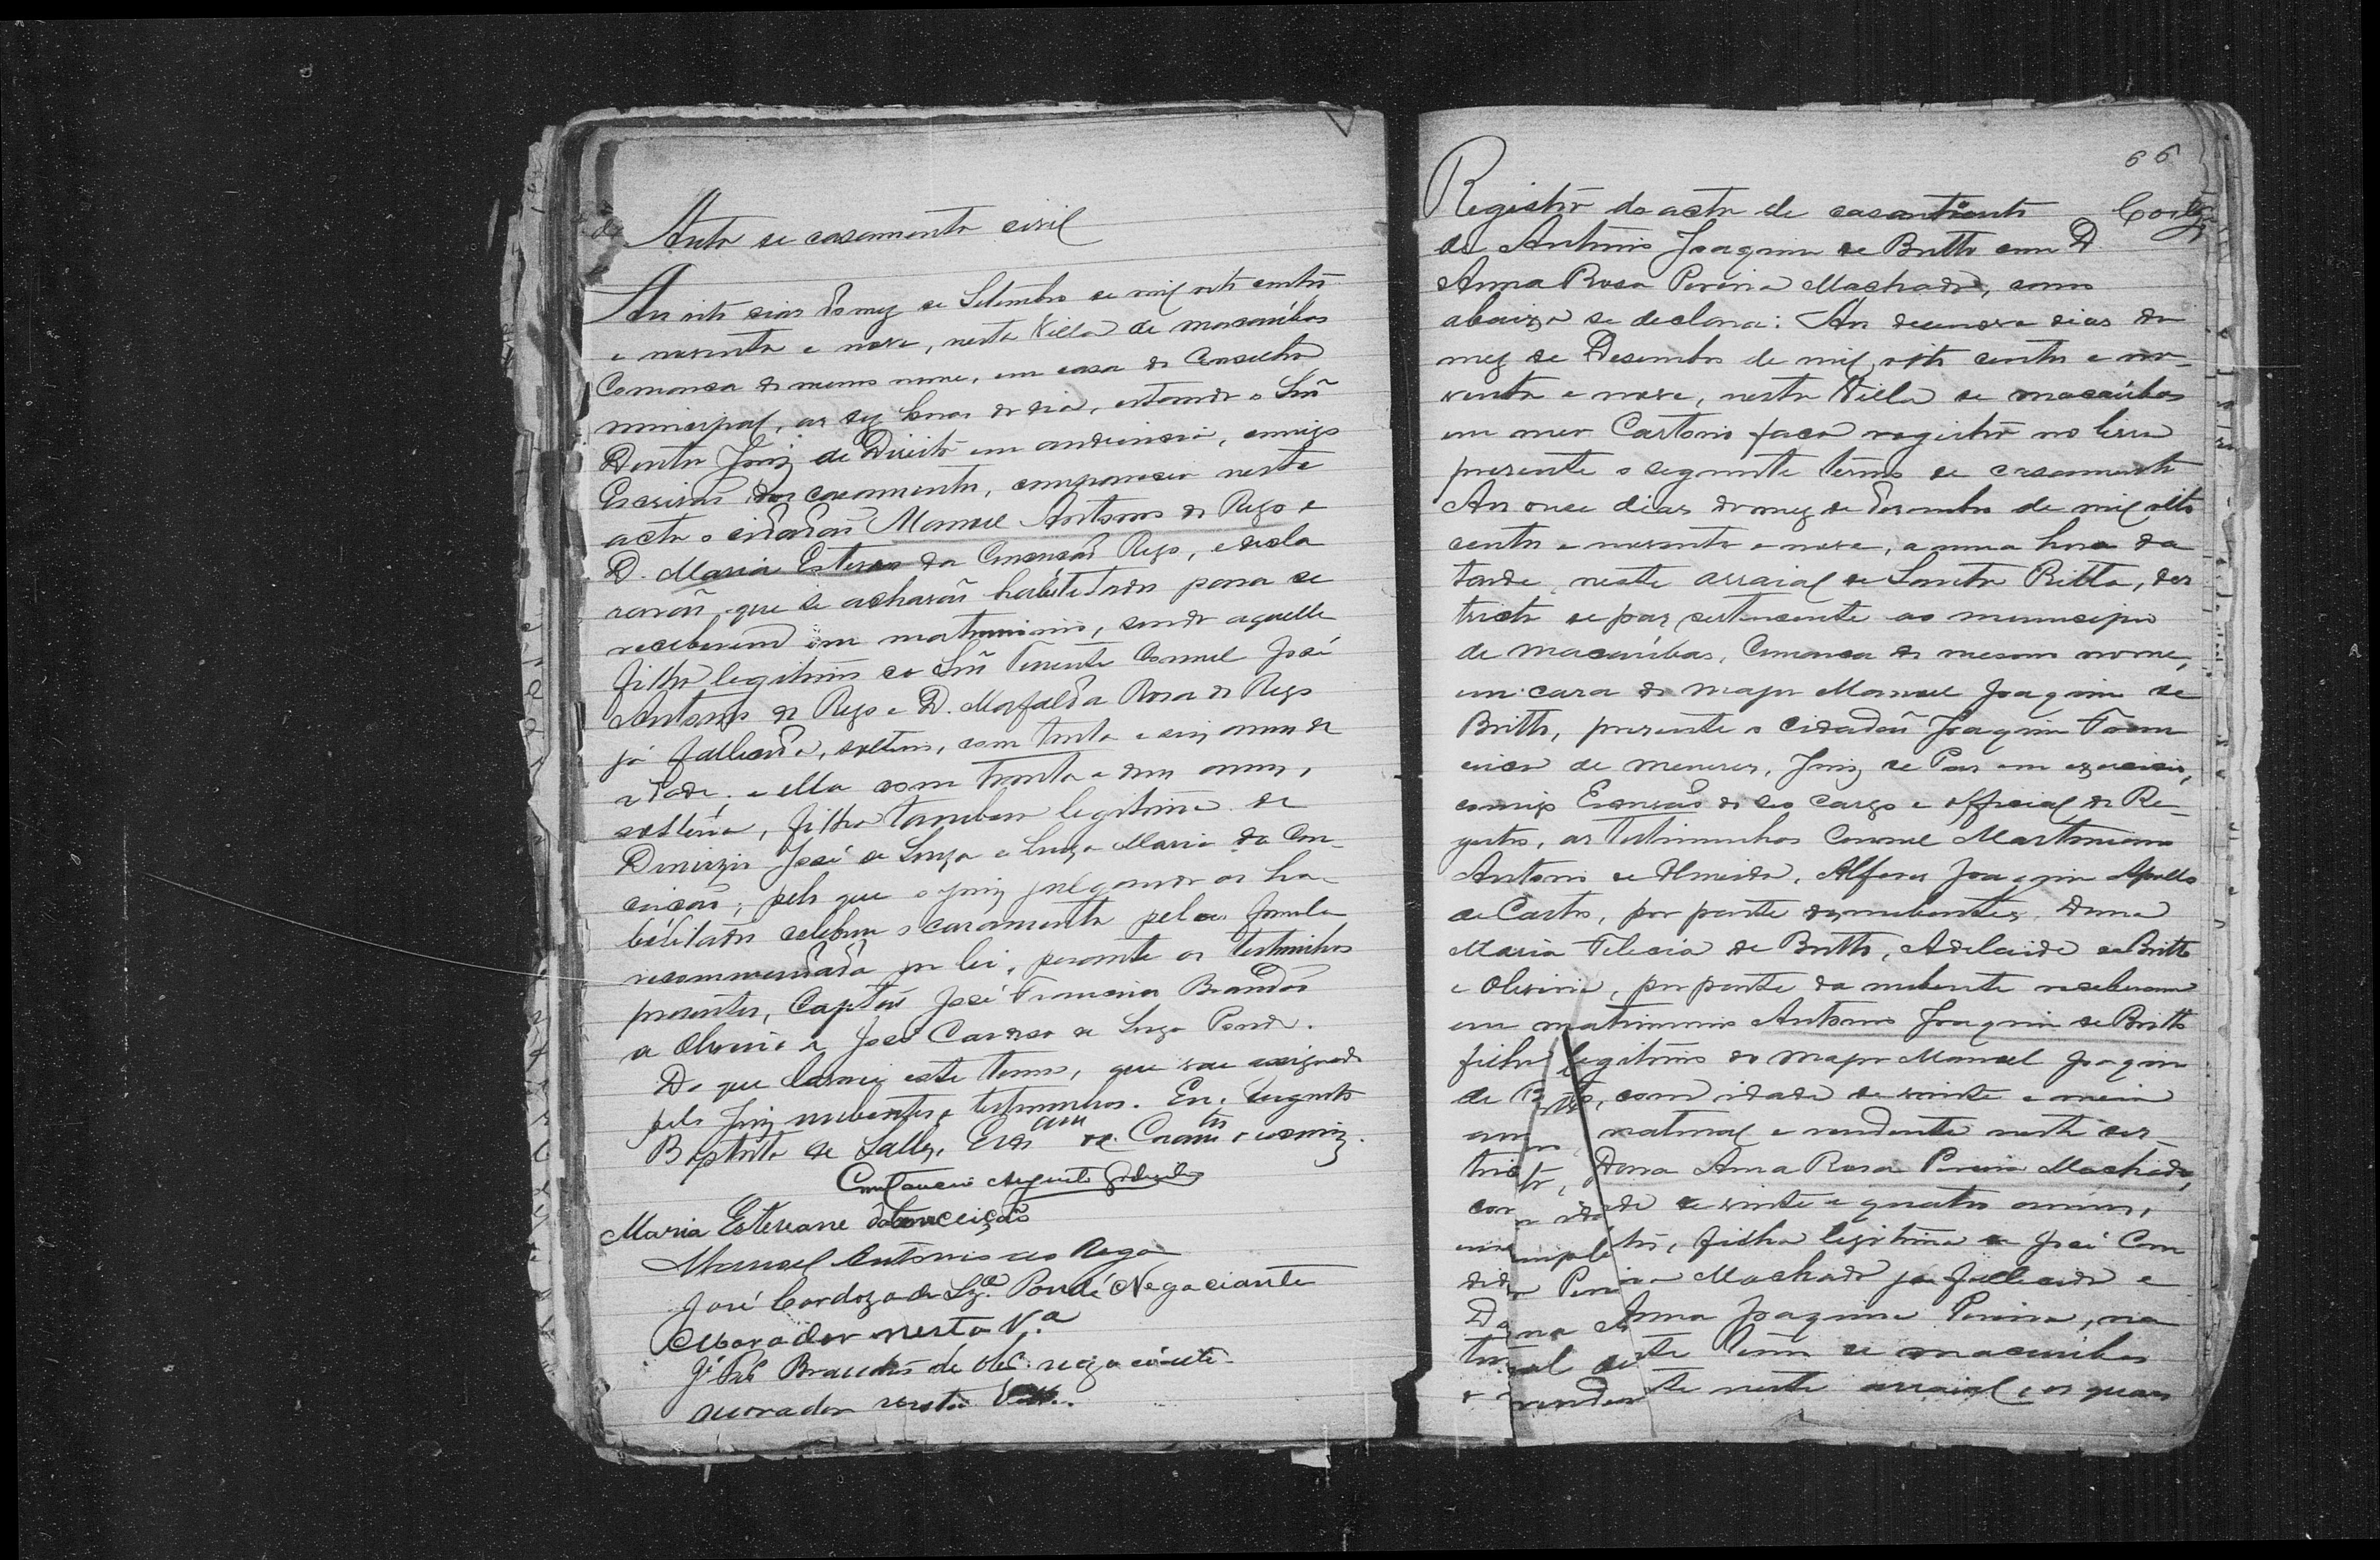 Auto de casamento civil
Aos oito dias do mez de Setembro de mil oito centos
e noventa e nove, nesta Villa de Macaúbas
Comarca do mesmo nome, em casa do Conselho
municipal, as dez horas do dia, estando o Snr
Doutor Juiz de Direito em audiencia, comigo
Escrivão dos casamentos, compareceu neste
acto o cidadão Manoel Antonio do Rego e
D. Maria Esteva da Conceição Rego, e decla
rarão que se acharão habilitados para se
receberem em matrimonio, sendo aquelle
filho legitimo do Snr Tenente Coronel José
Antonio do Rego e D. Mafalda Rosa do Rego
já fallecida, solteiro, com trinta e seis annos de
idade; e ella com trinta e dous annos,
solteira, filha tambem legitima de
Dionizio José de Souza e Luiza Maria da Con-
ceição; pelo que o juiz julgando os ha-
bilitados celebrou o casamento pela formula
recommendada por lei, perante as testimunhas
presentes, Capitão José Francisco Brandão
de Oliveira e José Cardoso de Souza Pondé.
Do que lavrei este termo, que vae assignado
pelo Juiz nubentes e testimunhas. Eu, Augusto
Baptista de Salles, Escram de Casamtos o escrevi.
Constancio Augusto
Maria Estevane da Conceição
Manoel Antonio do Rego
José Cardozo de Sza Pondé Negociante
Morador nesta Va
Jé Frco Brandão de Olra negociante
morador nesta Va.
66
Registro do acto de casamento
de Antonio Joaquim de Britto com D.
Anna Rosa Pereira Machado, como
abaixo se declara: Aos desenove dias do
mez de Desembro de mil oito centos e no-
venta e nove, nesta Villa de Macaúbas
em meu Cartorio faço registro no livro
presente o seguinte termo de casamento
Aos onse dias do mez de Desembro de mil oito
centos e noventa e nove, a uma hora da
tarde, neste arraial de Santa Ritta, des
tricto de paz pertencente ao municipio
de Macaúbas, Comarca do mesmo nome,
em casa do major Manoel Joaquim de
Britto, presente o cidadão Joaquim
de Meneses, Juiz de Paz em exercicio,
comigo Escrivão do seo cargo e official do Re-
gistro, as testimunhas Coronel Martiniano
Antonio de Almeida, Alferes Joaquim Apollo
de Castro, por parte dos nubentes, Dona
Maria Felicia de Britto, Adelaide de Britto
e Oliveira, por parte da nubente receberam
em matrimonio Antonio Joaquim de Britto
filho legitimo do major Manoel Joaquim
de Britto, com idade de vinte e
annos natural e rendente neste des-
tricto, Dona Anna Rosa Pereira Machado,
com idade de vinte e quatro annos,
completos, filha legitima de José Can
dido Pereira Machado já fallecido e
Dona Anna Joaquina Pereira, na
tural deste Termo de Macaúbas
e rendente neste arraial, os quaes